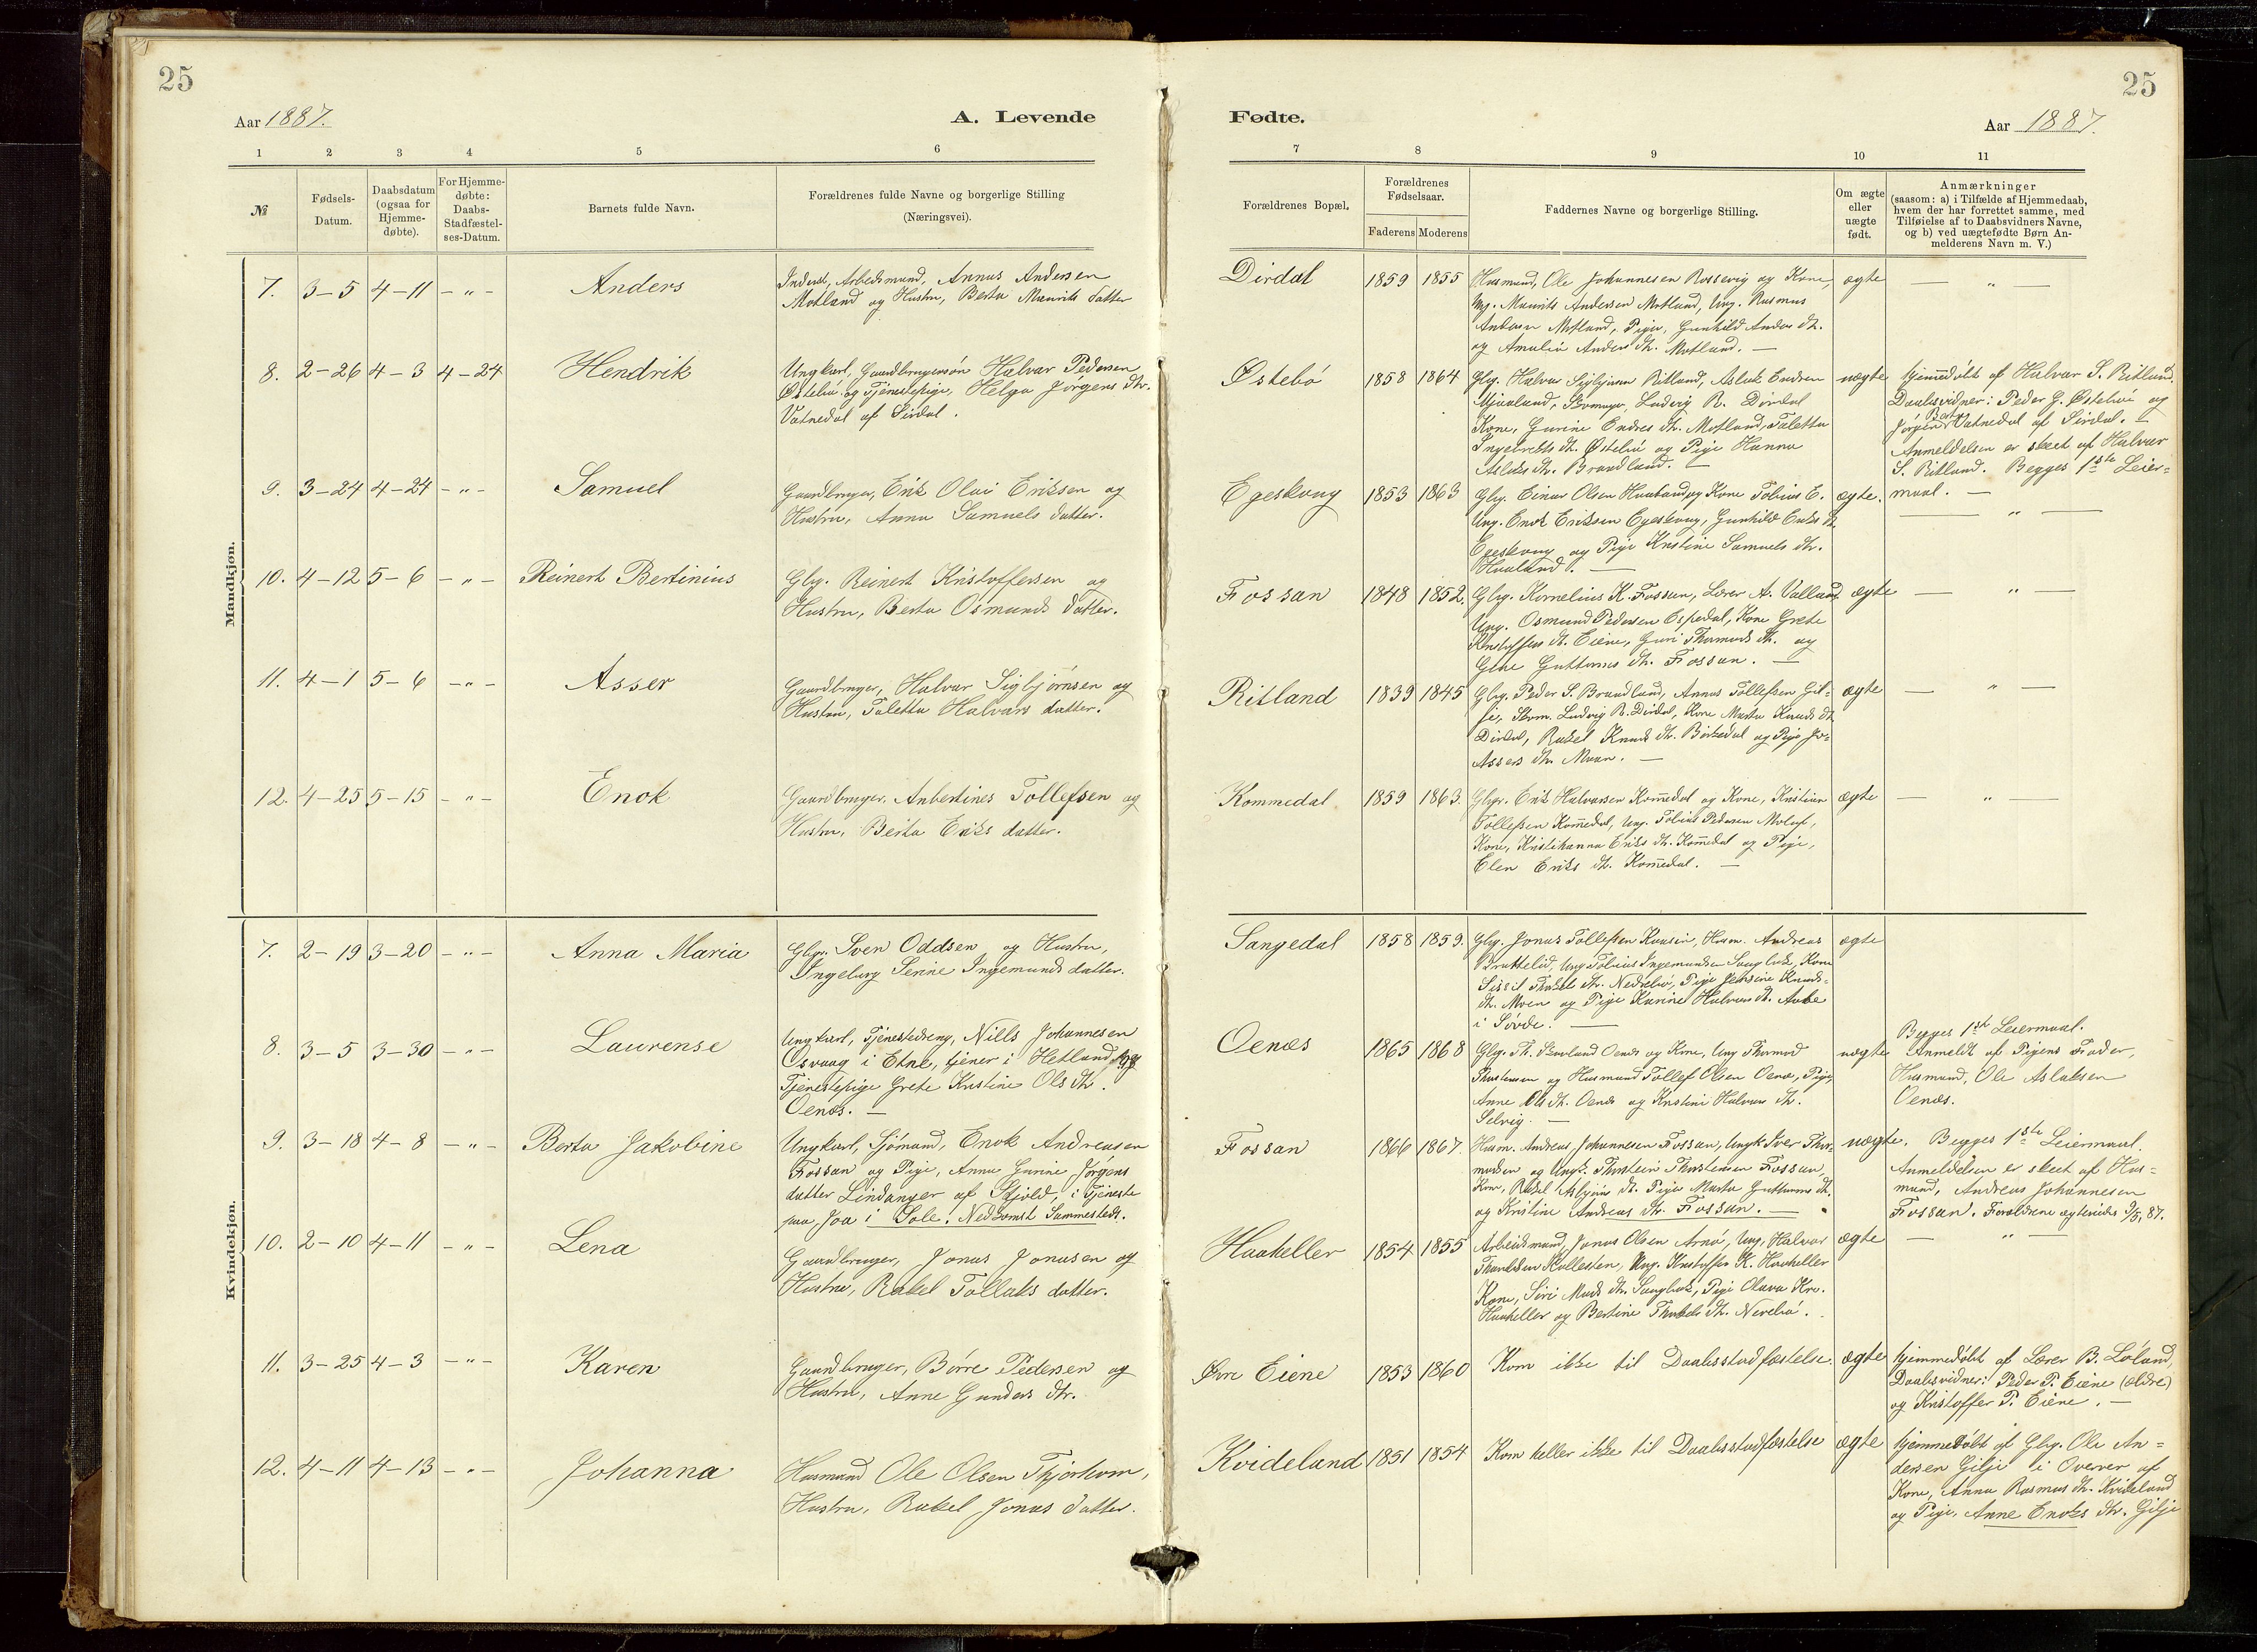 25
25
Aar 1887.
A. Levende
Fødte.
Aar 1887.
1 2 3 4 5 6
7 8 9 10 11
№
Fødsels-Datum.
Daabsdatum (ogsaa for Hjemme-døbte).
For Hjemme-døbte: Daabs-Stadfæstel-ses-Datum.
Barnets fulde Navn.
Forældrenes fulde Navne og borgerlige Stilling
(Næringsvei).
Forældrenes Bopæl.
Forældrenes Fødselsaar.
Faderens Moderens
Faddernes Navne og borgerlige Stilling.
Om ægte eller uægte født.
Anmærkninger
(saasom: a) i Tilfælde af Hjemmedaab,
hvem der har forrettet samme, med
Tilføielse af to Daabsvidners Navne,
og b) ved uægtefødte Børn An-
melderens Navn m. V.)
Mandkjøn.
7. 3-5 4-11 - " - Anders
Inderst, Arbeidsmand, Annas Andersen
Motland og Hustru, Berta Maurits datter
Dirdal 1859 1855
Husmand, Ole Johannesen Rossevig og Kone,
Ung. Maurits Andersen Motland, Ung. Rasmus
Andersen Motland, Pige, Gunhild Anders dtr.
og Amalia Anders dtr. Motland. —
ægte — " —
8. 2-26 4-3 4-24 Hendrik
Ungkarl, Gaardbrugersøn Halvar Pedersen
Østebø og Tjenestepige, Helga Jørgens dtr.
Vatnedal af Sirdal.
Østebø 1858 1864
Gbg. Halvar Sigbjørnsen Ritland, Aslak Endresen
Mjaaland, Skomager, Ludvig R. Dirdal
Kone, Gurine Endres dtr. Motland, Taletta
Ingebrets dtr. Østebø og Pige Hanna
Aslaks dtr. Brandland. —
uægte
hjemmedøbt af Halvar S. Ritland.
Daabsvidner: Peder G. Østebø og
Jørgen Vatnedal af Sirdal. —
Anmeldelsen er skeet af Halvar
S. Ritland. Begges 1ste Leier-
maal. —
9. 3-24 4-24 - " - Samuel
Gaardbruger, Erik Olai Eriksen og
Hustru, Anna Samuels datter.
Egeskoug 1853 1863
Gbg. Einar Olsen Haaland og Kone Tobias E.
Ung. Enok Eriksen Egeskoug, Gunhild Eriks dtr.
Egeskoug og Pige Kristine Samuels dtr.
Haaland. —
ægte. — " —
10. 4-12 5-6 - " - Reinert Bertinius
Gbg. Reinert Kristoffersen og
Hustru, Berta Osmunds datter.
Fossan 1848 1852.
Gbg. Kornelius K. Fossan, Lærer A. Valland
Ung. Osmund Pedersen Espedal, Kone Grete
Kristoffers dt. Eiene, Guri Thormods dtr. og
Gine Guttorms dtr. Fossan. —
ægte — " —
11. 4-1 5-6 - " - Asser
Gaardbruger, Halvar Sigbjørnsen og
Hustru, Taletta Halvars datter.
Ritland 1839 1845
Gbg. Peder S. Brandland, Annas Tollefsen Gil-
je, Skom. Ludvig R. Dirdal, Kone Marta Knuds dtr.
Dirdal, Rakel Knuds dtr. Birkedal og Pige
Assers dtr. Moen. —
ægte — " —
12. 4-25 5-15 - " - Enok
Gaardbruger, Anbertines Tollefsen og
Hustru, Berta Eriks datter.
Kommedal 1859 1863.
Gbgr. Erik Halvarsen Kommedal og Kone, Kristian
Tollefsen Kommedal, Ung. Tobias Pedersen Molaup,
Kone, Kristehanna Eriks dtr. Kommedal og Pige,
Elen Eriks dtr. Kommedal. —
ægte — " —
Kvindekjøn.
7. 2-19 3-20 - " - Anna Maria
Gbgr. Sven Oddsen og Hustru,
Ingeborg Serine Ingemunds datter.
Sangedal 1858 1859.
Gbg. Jonas Tollefsen, Husm. Andreas
Brattelid, Ung Tobias Ingemundsen, Kone
Sissil dtr. Nedrebø, Pige Jensine Knuds-
dtr. Moen og Pige Karine Halvars dtr.
i Søvde. —
ægte
8. 3-5 3-30 - " - Laurense
Ungkarl, Tjenestedreng, Nills Johannesen
Osvaag i Etne, tjener i Hetland, og
Tjenestepige Grete Kristine Ols dtr.
Oenæs. —
Oenæs 1865 1868
Gbg. Th. Skavland Oenæs og Kone, Ung Thormod
Thorstensen og Husmand Tollef Olsen Oenæs, Pige
Anne Ols dt. Oenæs og Kristine Halvars dtr.
Selvig. —
uægte
Begges 1ste Leiermaal.
Anmeldt af Pigens Fader,
Husmand, Ole Aslaksen
Oenæs.
9. 3-18 4-8 - " - Berta Jakobine
Ungkarl, Sjømand, Enok Andreasen
Fossan og Pige, Anna Gurine Jørgens
datter Lindanger af Skjold, i Tjeneste
paa Joa i Sole. Nedkomst Sammesteds.
Fossan 1866 1867.
Husm. Andreas Johannesen Fossan, Ungk. Iver Thor-
modsen og Ungk. Thorstein Thorstensen Fossan,
Kone, Rakel Asbjørns dt. Pige Marta Guttorms dt.
og Kristine Andreas dtr. Fossan. —
uægte.
Begges 1ste Leiermaal.
Anmeldelsen er skeet af Hus-
mand, Andreas Johannesen
Fossan. Forældrene ægteviede 3/5. 87.
10. 2-10 4-11 - " - Lena
Gaardbruger, Jonas Jonasen og
Hustru, Rakel Tollaks datter.
Haakeller 1854 1855
Arbeidsmand, Jonas Olsen Arnø, Ung. Halvar
Kollesten, Ung. Kristoffer K. Haakeller
Kone, Siri Mads dtr., Pige Olava
Haakeller og Bertine dtr. Nerebø.
ægte — " —
11. 3-25 4-3 - " - Karen
Gaardbruger, Børre Pedersen og
Hustru, Anne Gunders dtr.
Øvre Eiene 1853 1860
Kom ikke til Daabsstadfæstelse.
ægte
hjemmedøbt af Lærer B. Løland,
Daabsvidner: Peder P. Eiene (ældre)
og Kristoffer P. Eiene. —
12. 4-11 4-13 - " - Johanna
Husmand Ole Olsen Tkjørhom,
Hustru, Rakel Jonas datter.
Kvideland 1851 1854
Kom heller ikke til Daabsstadfæstelse
ægte
hjemmedøbt af Gbg. Ole An-
dersen Gilje i Overvær af
Kone, Anna Rasmus dtr. Kvideland
og Pige, Anne Enoks dtr. Gilje